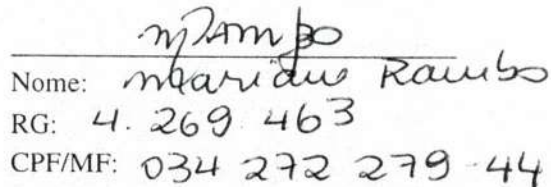 MRAMBO
Nome: Mariane Rambo
RG: 4. 269 463
CPF/MF: 034 272 279 - 44